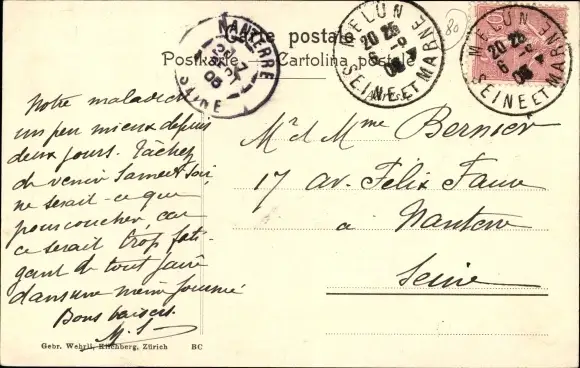 Carte postale
Postkarte — Cartolina postale
NANTERRE
SEINE
MELUN
20 25
6 -9
05
SEINE ET MARNE
MELUN
20 25
6 -9
05
SEINE ET MARNE
80
Notre malade va
un peu mieux depuis
deux jours. Tâchez
de venir Samedi soir,
ne serait-ce que
pour coucher, car
ce serait trop fati-
gant de tout faire
dans une même journée
Bons baisers.
M. L
Mr et Mme Bernier
17 av. Félix Faure
à Nanterre
Seine
Gebr. Wehrli, Kilchberg, Zürich BC